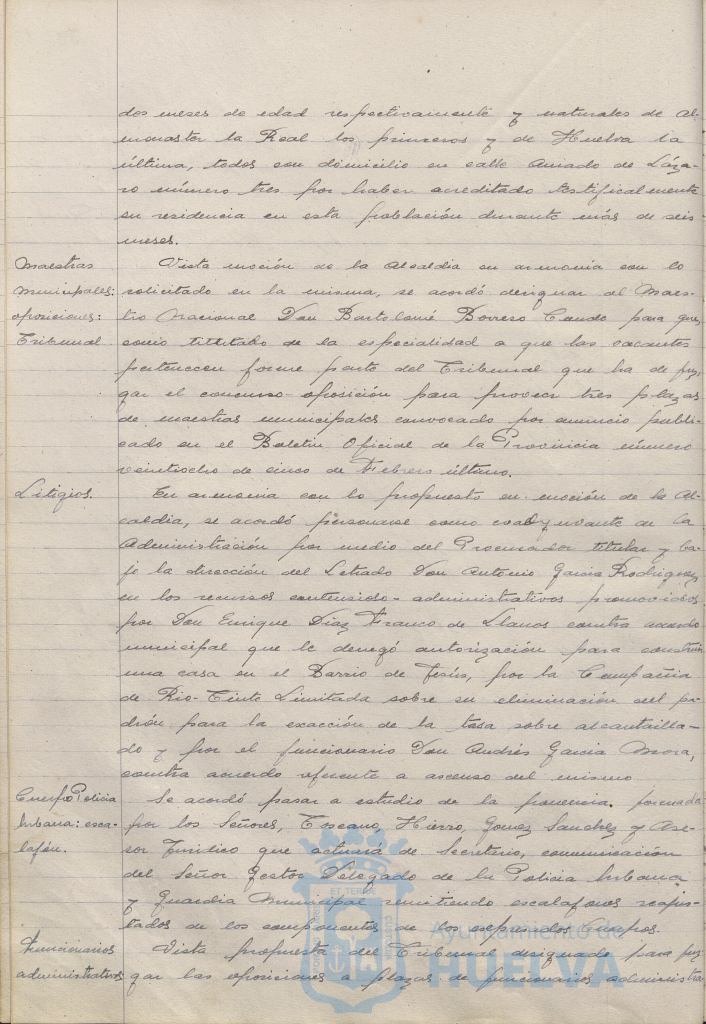 dos meses de edad respectivamente y naturales de Al-
monaster la Real los primeros y de Huelva la
última, todos con domicilio en calle Amado de Láza-
ro número tres por haber acreditado testificalmente
su residencia en esta población durante más de seis
meses.
Maestras
municipales:
oposiciones:
Tribunal
Vista moción de la Alcaldia en armonia con lo
solicitado en la misma, se acordó designar al Maes-
tro Nacional Don Bartolomé Borrero Conde para que
como titulado de la especialidad a que las vacantes
pertenecen forme parte del Tribunal que ha de juz-
gar el concurso-oposición para proveer tres plazas
de maestras municipales convocado por anuncio publi-
cado en el Boletin Oficial de la Provincia número
veintiocho de cinco de Febrero último.
Litigios.
En armonia con lo propuesto en moción de la Al-
caldia, se acordó personarse como coadyuvante de la
Administración por medio del Procurador titular y ba-
jo la dirección del Letrado Don Antonio Garcia Rodriguez
en los recursos contencioso-administrativos promovidos
por Don Enrique Diaz Franco de Llanos contra acuerdo
municipal que le denegó autorización para construir
una casa en el Barrio de Jesús, por la Compañia
de Rio-Tinto Limitada sobre su eliminación del pa-
drón para la exacción de la tasa sobre alcantarilla-
do y por el funcionario Don Andrés Garcia Mora,
contra acuerdo referente a ascenso del mismo
Cuerpo Policia
Urbana: esca-
lafón.
Se acordó pasar a estudio de la ponencia, formada
por los Señores, Toscano, Hierro, Gomez Sanchez y Ase-
sor Juridico que actuará de Secretario, comunicación
del Señor Gestor Delegado de la Policia Urbana
y Guardia Municipal remitiendo escalafones
de los componentes de los expresados Cuerpos.
Funcionarios
administrativos
Vista propuesta del Tribunal designado para juz-
gar las oposiciones a plazas de funcionarios administra
Ayuntamiento de
HUELVA